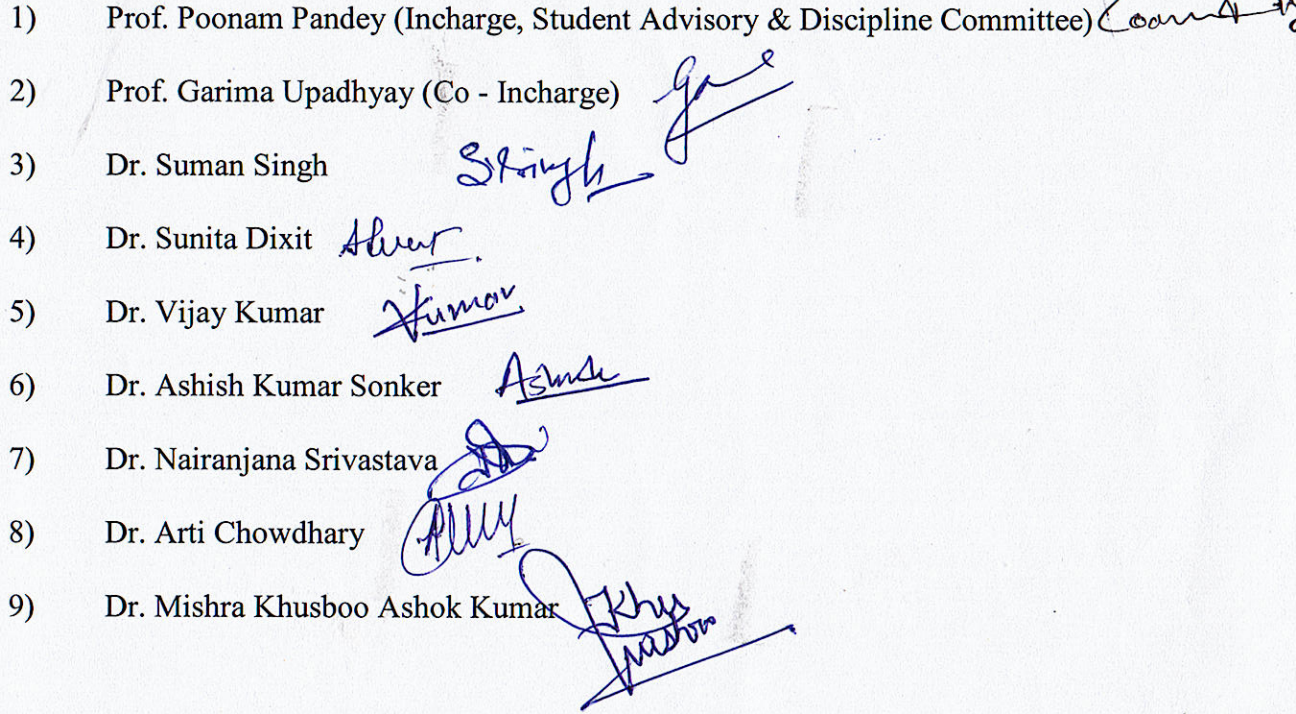 1) Prof. Poonam Pandey (Incharge, Student Advisory & Discipline Committee)
2) Prof. Garima Upadhyay (Co - Incharge)
3) Dr. Suman Singh SSingh
4) Dr. Sunita Dixit
5) Dr. Vijay Kumar VKumar
6) Dr. Ashish Kumar Sonker
7) Dr. Nairanjana Srivastava
8) Dr. Arti Chowdhary
9) Dr. Mishra Khusboo Ashok Kumar Khus